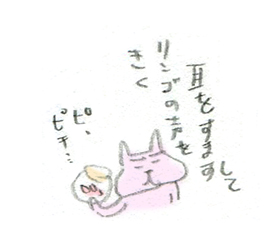 耳をすますして
リンゴの声を
きく
ピ、
ピチ…